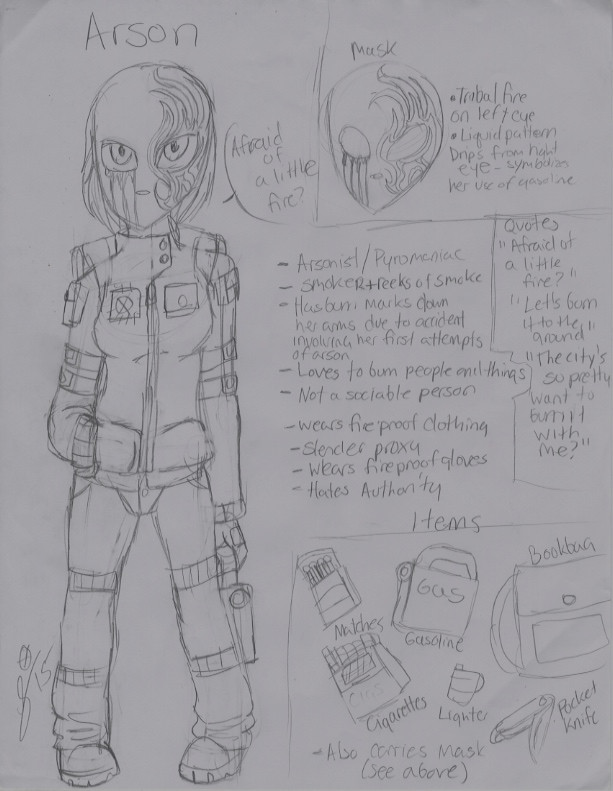 Arson
Afraid
of
a little
fire?
Mask
• Tribal fire
on left eye
• Liquid pattern
Drips from right
eye - symbolizes
her use of gasoline
- Arsonist/Pyromaniac
- smoker + reeks of smoke
- Has burn marks down
her arms due to accident
involving her first attempts
of arson
- Loves to burn people and things
- Not a sociable person
- wears fire proof clothing
- Slender proxy
- Wears fireproof gloves
- Hates Authority
Quotes
"Afraid of
a little
fire?"
"Let's burn
it to the
ground"
"The city's
so pretty
want to
burn it
with
me?"
Items
Matches
Gas
Gasoline
Bookbag
Cigs
Cigarettes
Lighter
Pocket
Knife
- Also carries mask
(see above)